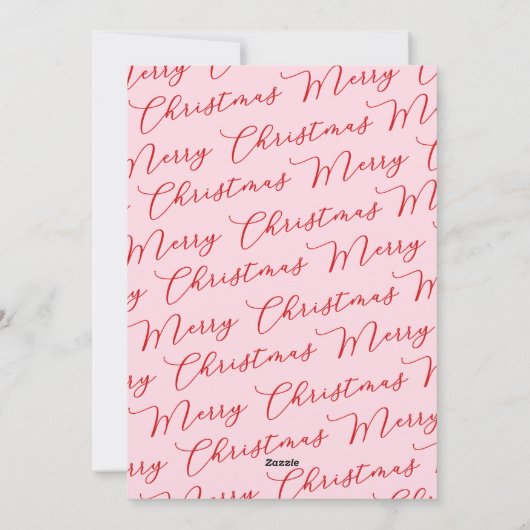 erry
Christmas Merry
Merry Christmas
Christmas Merry
Merry Christmas
y Christmas Merry
Merry Christmas
ry Christmas Merry
Merry Christmas
rry Christmas Merry
Merry Christmas
Zazzle